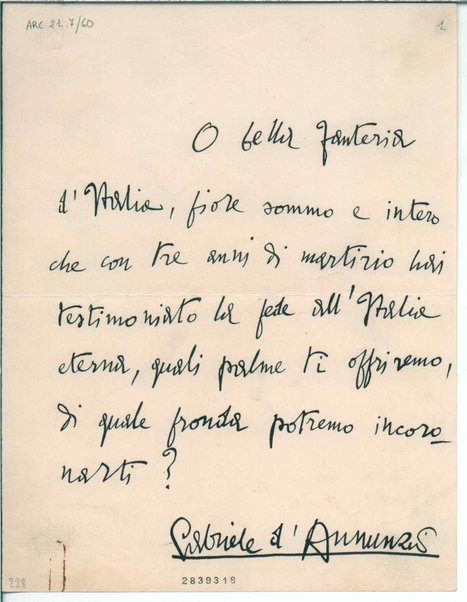 ARC 21.7/60
1
O bella fanteria
d'Italia, fiore sommo e intero
che con tre anni di martirio hai
testimoniato la fede all'Italia
eterna, quali palme ti offriremo,
di quale fronda potremo incoro_
narti?
Gabriele d'Annunzio
228
2839318